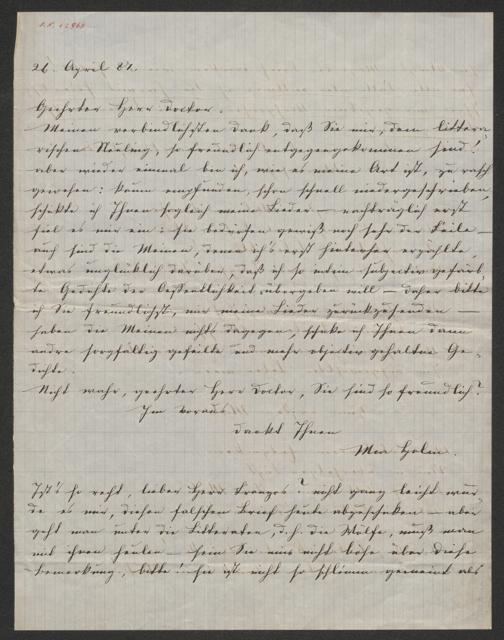 26. April 87.
Geehrter Herr Doctor.
Meinen verbindlichsten Dank, daß Sie mir, dem littera-
rischen Neuling, so freundlich entgegengekommen sind!
Aber wieder einmal bin ich, wie es meine Art ist, zu rasch
gewesen: kaum empfunden, schon schnell niedergeschrieben,
schickte ich Ihnen sogleich meine Lieder – nachträglich erst
fiel es mir ein: sie bedürfen gewiß noch sehr der Feile –
auch sind die Meinen, denen ich's erst hinterher erzählte,
etwas unglücklich darüber, daß ich so subjectiv gefärb-
te Gedichte der Oeffentlichkeit übergeben will – daher bitte
ich Sie freundlichst, mir meine Lieder zurückzusenden –
haben die Meinen nichts dagegen, schicke ich Ihnen dann
andre sorgfältig gefeilte und mehr objectiv gehaltne Ge-
dichte.
Nicht wahr, geehrter Herr Doctor, Sie sind so freundlich?
Im Voraus
dankt Ihnen
Mia Holm.
Ist's so recht, lieber Herr Franzos? nicht ganz leicht wur-
de es mir, diesen falschen Brief heute abzuschicken – aber
geht man unter die Litteraten, d. h. die Wölfe, muß man
mit ihnen heulen – sein Sie mir nicht böse über diese
Bemerkung, bitte! sie ist nicht so schlimm gemeint als